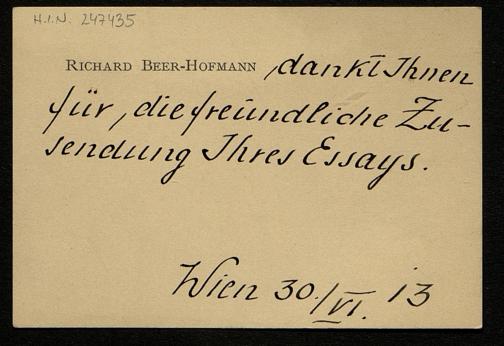 H.I.N. 247435
RICHARD BEER-HOFMANN dankt Ihnen
für, die freundliche Zu-
sendung Ihres Essays.
Wien 30./VI. 13